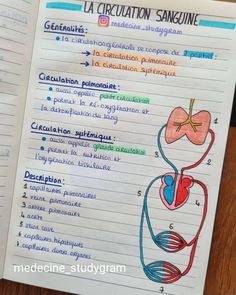 LA CIRCULATION SANGUINE
medecine_studygram
Généralités:
la circulation générale se compose de 2 parties:
→ la circulation pulmonaire
→ la circulation systémique
Circulation pulmonaire:
aussi appelée petite circulation
permet la ré-oxygénation et
la detoxification du sang
Circulation systémique:
aussi appelée grande circulation
permet la nutrition et
l'oxygénation tissulaire
Description:
1 capillaires pulmonaires
2 veine pulmonaire
3 artère pulmonaire
4 aorte
5 veine cave
6 capillaires hépatiques
7 capillaires autres organes
1
2
3
4
5
6
7
medecine_studygram